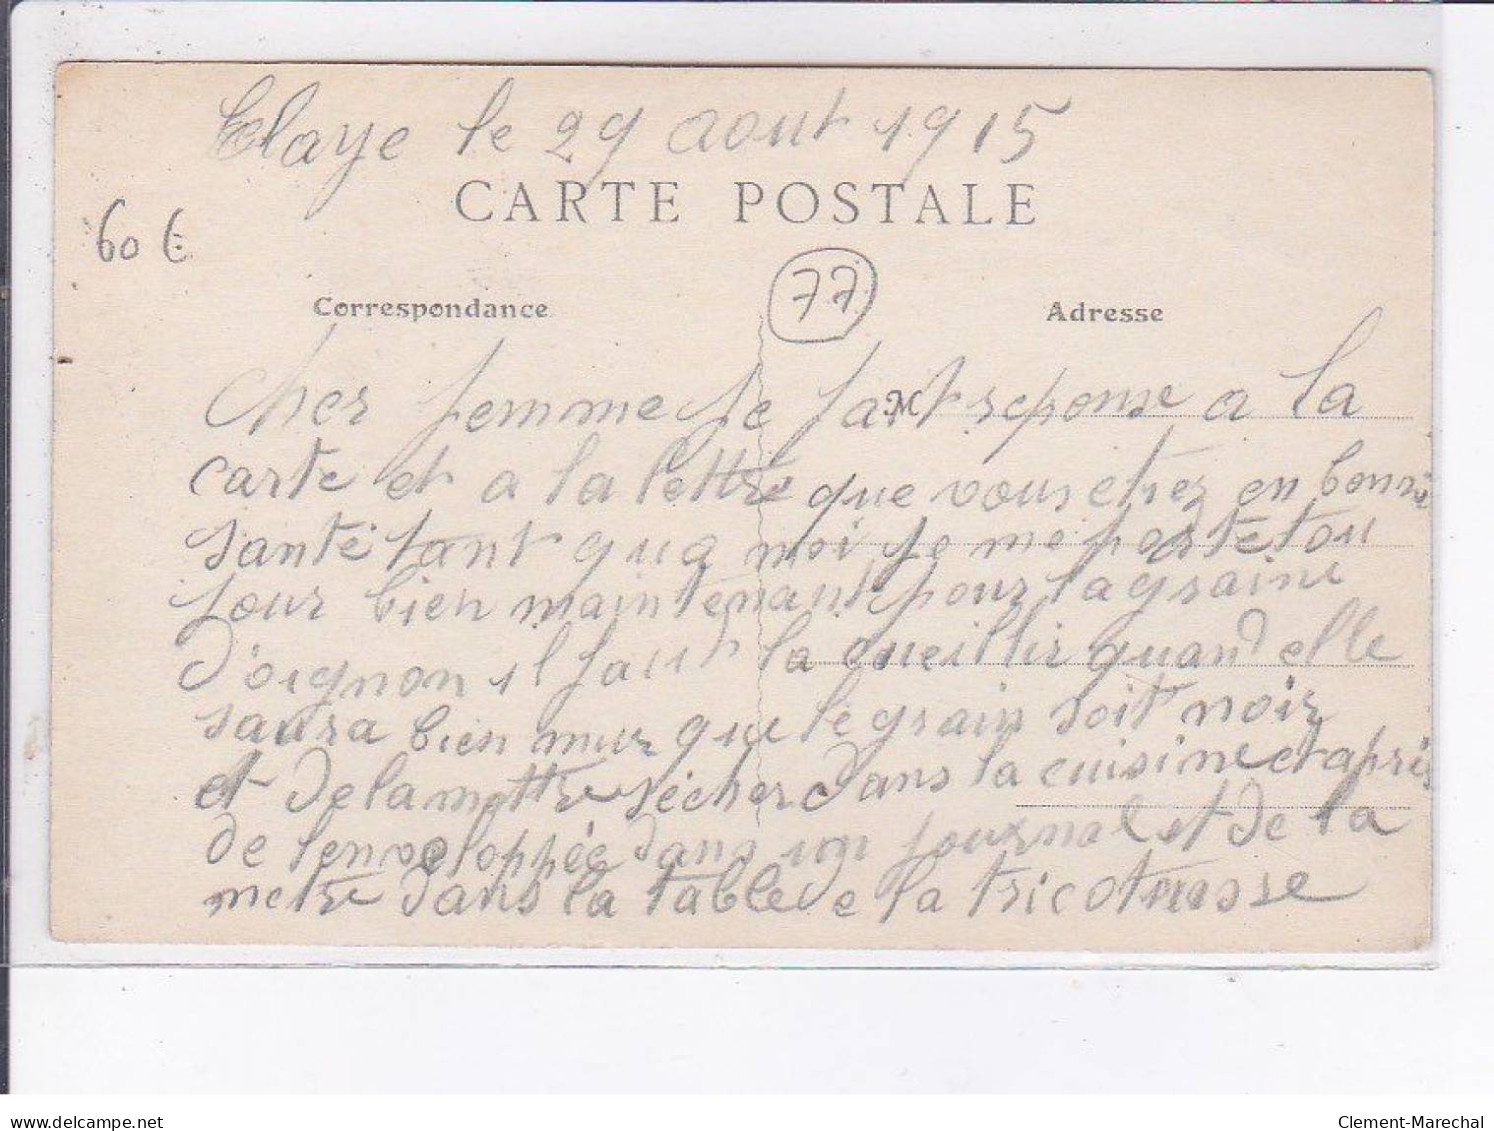 Claye le 29 aout 1915
CARTE POSTALE
60 €
77
Correspondance
Adresse
M
Cher femme je fait reponse a la
carte et a la lettre que vous etrez en bonne
santé tant qua moi je me porte tou
jour bien maintenant pour la graine
d'oignon il faut la cueillir quand elle
saura bien mur que le grain soit noir
et de la mettre sécher dans la cuisine et apres
de lenveloppée dans un journal et de la
metre dans la table de la tricoteusse
delcampe.net
Clement-Marechal